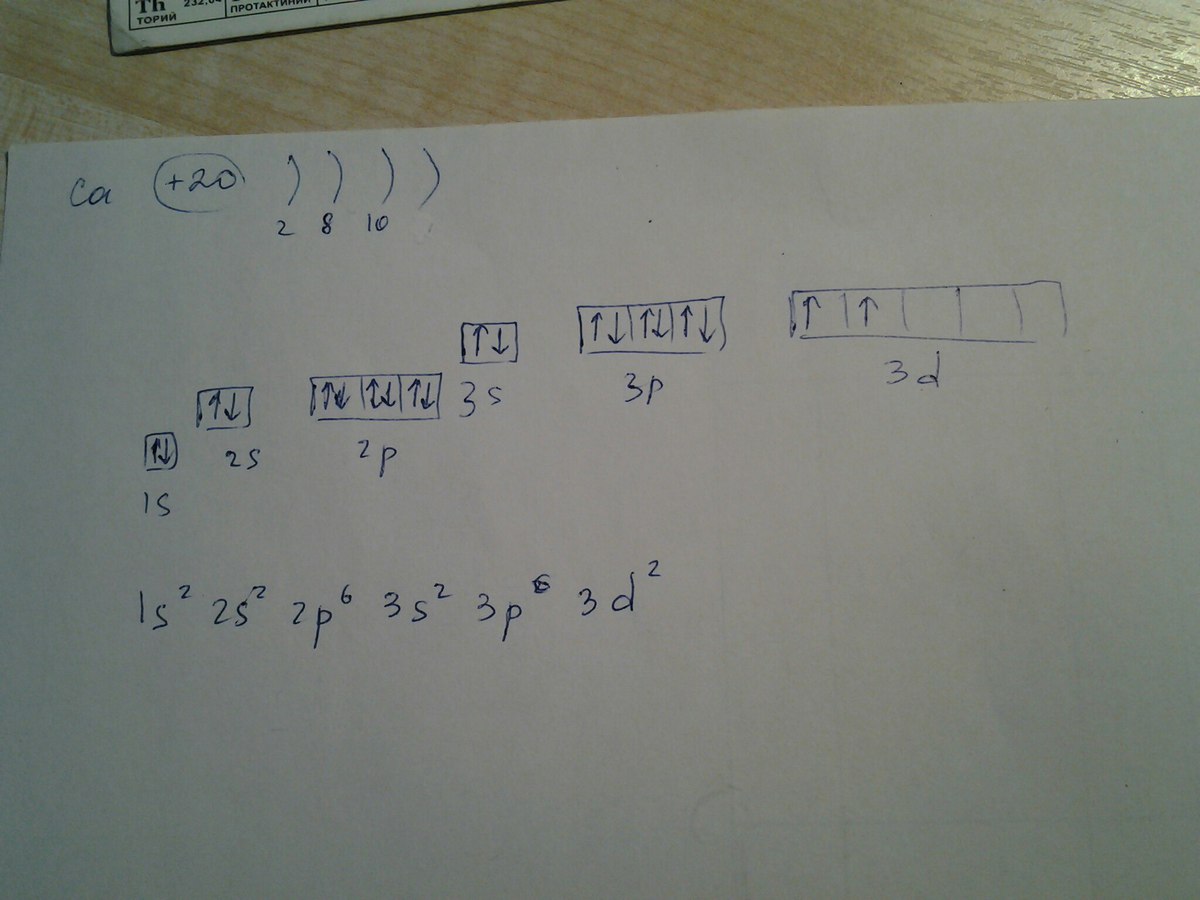 Th 232,0
ТОРИЙ ПРОТАКТИНИЙ
Ca +20 ) ) ) )
2 8 10
↑↓ ↑↓ ↑↓ ↑↓ ↑ ↑
3s 3p 3d
↑↓ ↑↓ ↑↓ ↑↓
↑↓ 2s 2p
1s
1s² 2s² 2p⁶ 3s² 3p⁶ 3d²